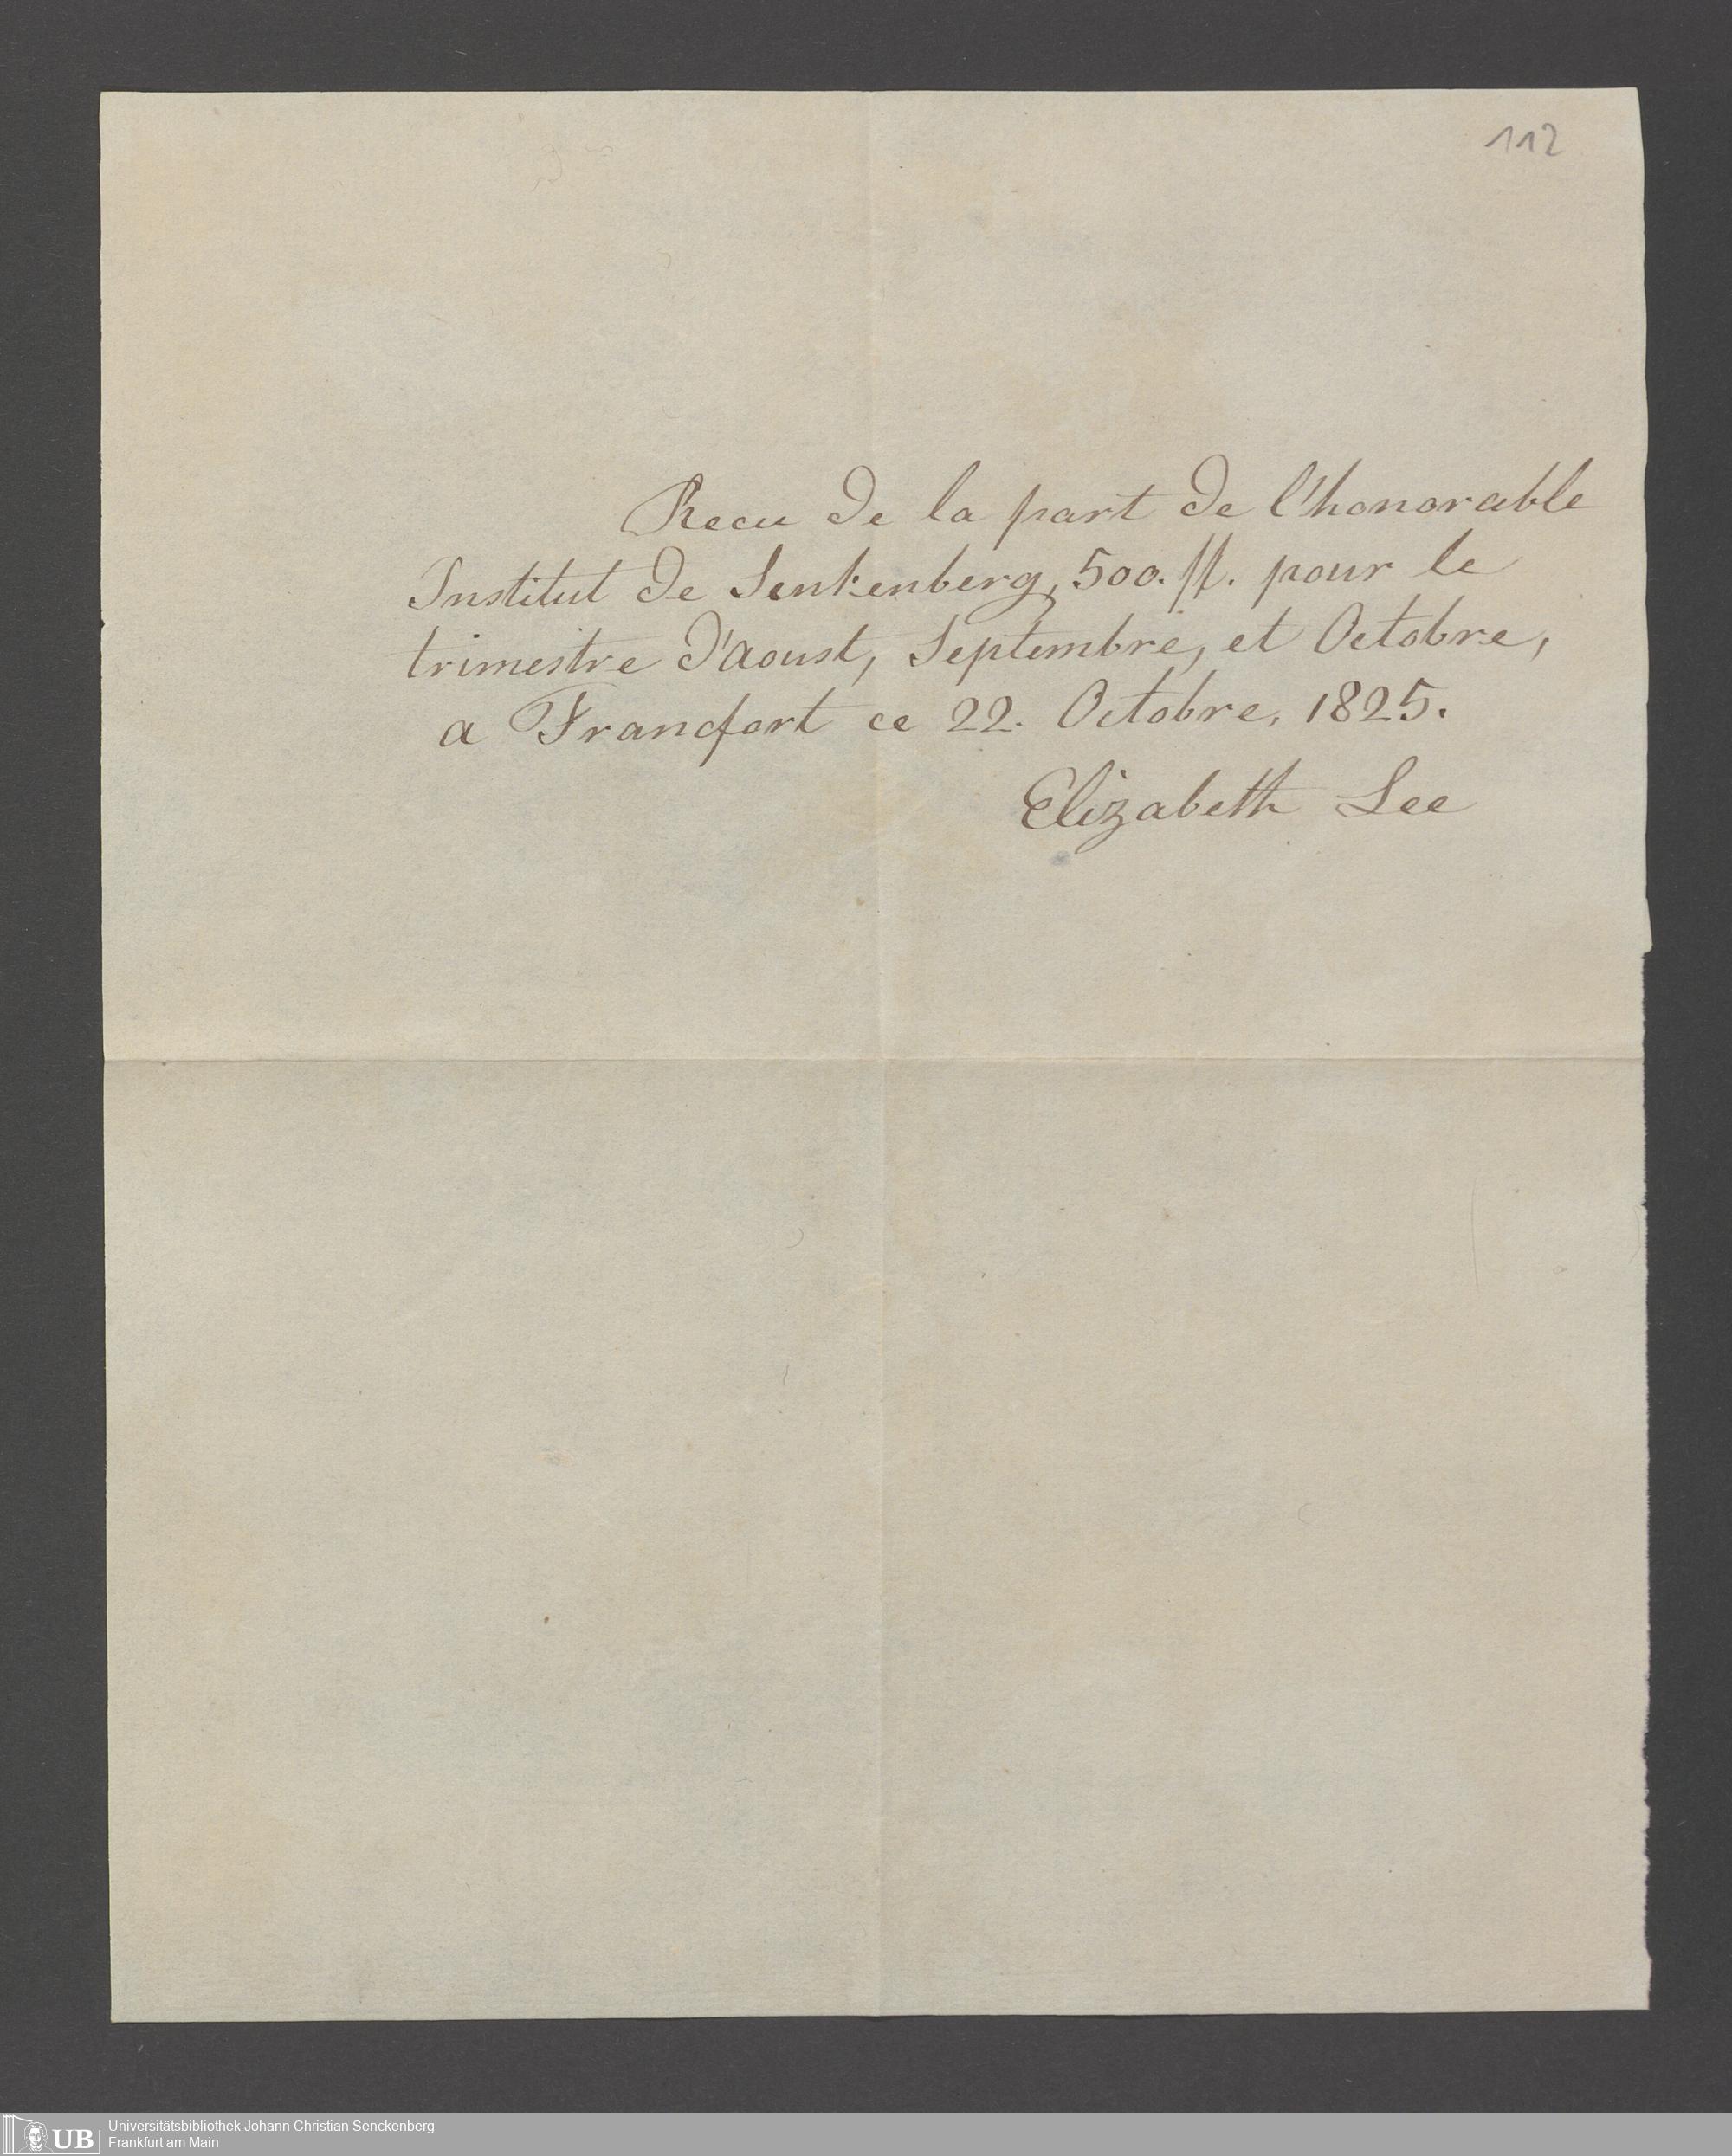 112
Recu de la part de l'honorable
Institut de Senkenberg, 500. fl. pour le
trimestre d'Aoust, Septembre, et Octobre,
a Francfort ce 22. Octobre, 1825.
Elizabeth Lee
UB
Universitätsbibliothek Johann Christian Senckenberg
Frankfurt am Main